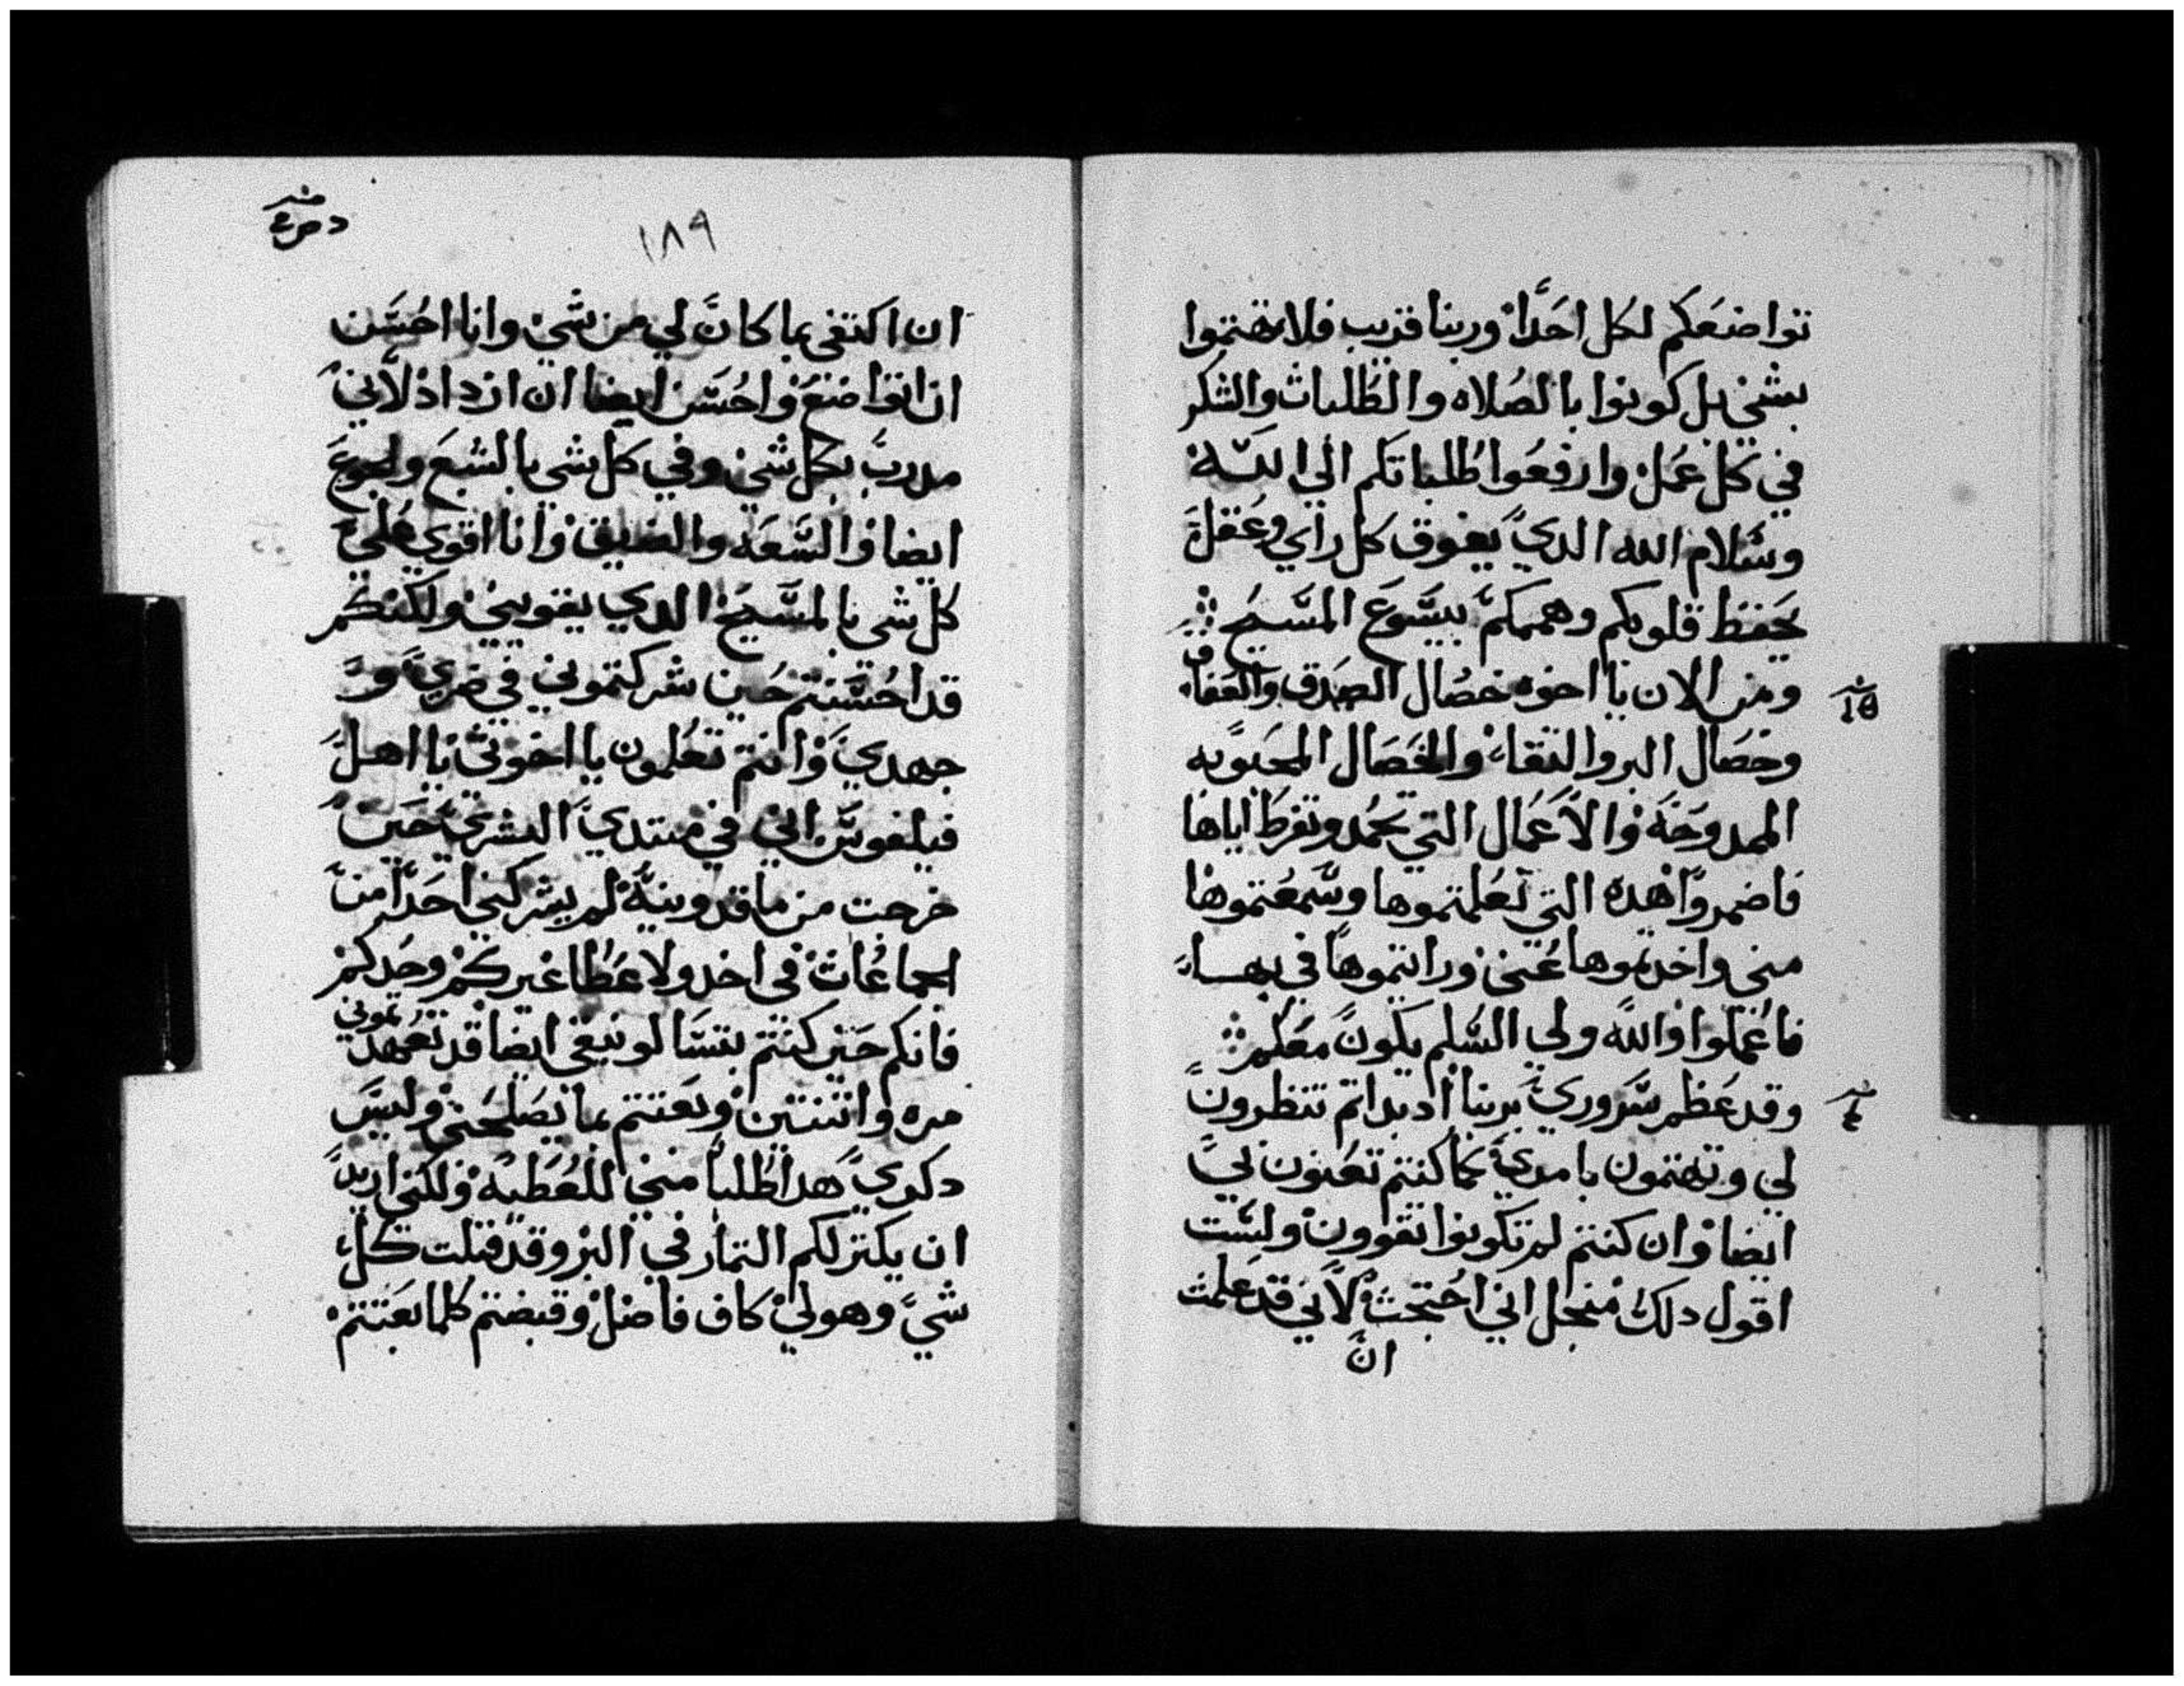 تواضعكم لكل احدا وربنا قريب فلا تهتموا
بشي بل كونوا بالصلاه والطلبات والشكر
في كل عمل وارفعوا طلباتكم الي الله
وسلام الله الدي يفوق كل راي وعقل
يحفظ قلوبكم وهممكم بيسوع المسيح
ومن الان يا اخوه خصال الصدق والعفاف
وخصال البر والتقاء والخصال المحبوبه
الممدوحه والاعمال التي تحمد وتفرط اياها
فاضمروا هده التي تعلمتموها وسمعتموها
مني واخدتموها عني ورايتموها في بهاء
فاعملوا والله ولي السلم يكون معكم
وقد عظم سروري بربنا اد بداتم تنظرون
لي وتهتمون بامري كما كنتم تعنون لي
ايضا وان كنتم لم تكونوا تقوون ولست
اقول دلك منجل اني احتجت لاني قد علمت
ان
١٨٩
ان اكتفي بما كان لي من شي وانا احسن
ان اتواضع واحسن ايضا ان ازداد لاني
مدرب بكل شي وفي كل شي بالشبع والجوع
ايضا والسعه والضيق وانا اقوي علي
كل شي بالمسيح الدي يقويني ولكنكم
قد احسنتم حين شركتموني في ضري و
جهدي وانتم تعلمون يا اخوتي يا اهل
فيلفوس اني في مبتدي البشري حين
خرجت من ماقدونيه لم يشركني احدا من
الجماعات في اخد ولا عطا غيركم وحدكم
فانكم حين كنتم بتسالونيقي ايضا قد تعهدتموني
مره واتنتين وبعتتم بما يصلحني وليس
دكري هدا طلبا مني للعطيه ولكني اريد
ان يكتر لكم التمار في البر وقد قبلت كل
شي وهو لي كاف فاضل وقبضتم كلما بعتتم